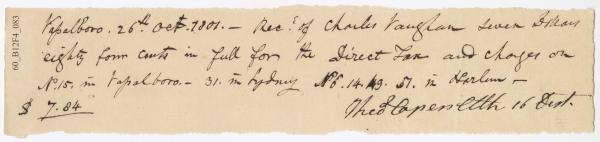 Vassalboro. 26th Oct. 1801. — Recd. of Charles Vaughan seven Dollars
eighty four cents in full for the Direct Tax and charges on
No. 15. in Vassalboro. — 31. in Sydney No 6. 14. 49. 51. in Harlem —
$ 7.84
Coll 16 Dist.
60_B12F4_083